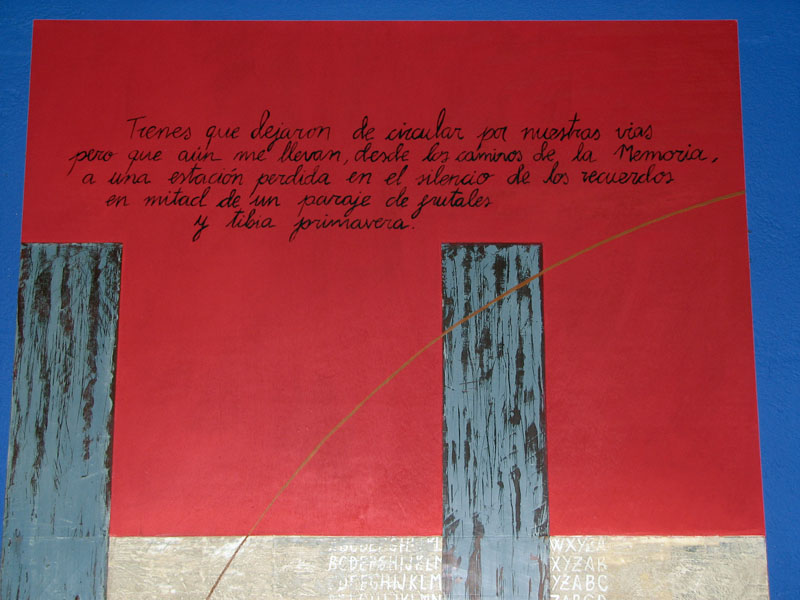 Trenes que dejaron de circular por nuestras vias
pero que aún me llevan, desde los caminos de la Memoria,
a una estación perdida en el silencio de los recuerdos
en mitad de un paraje de frutales
y tibia primavera.
WXYZA
BCDEFGHIJKLM YZAB
EFGHIJKLM YZABC